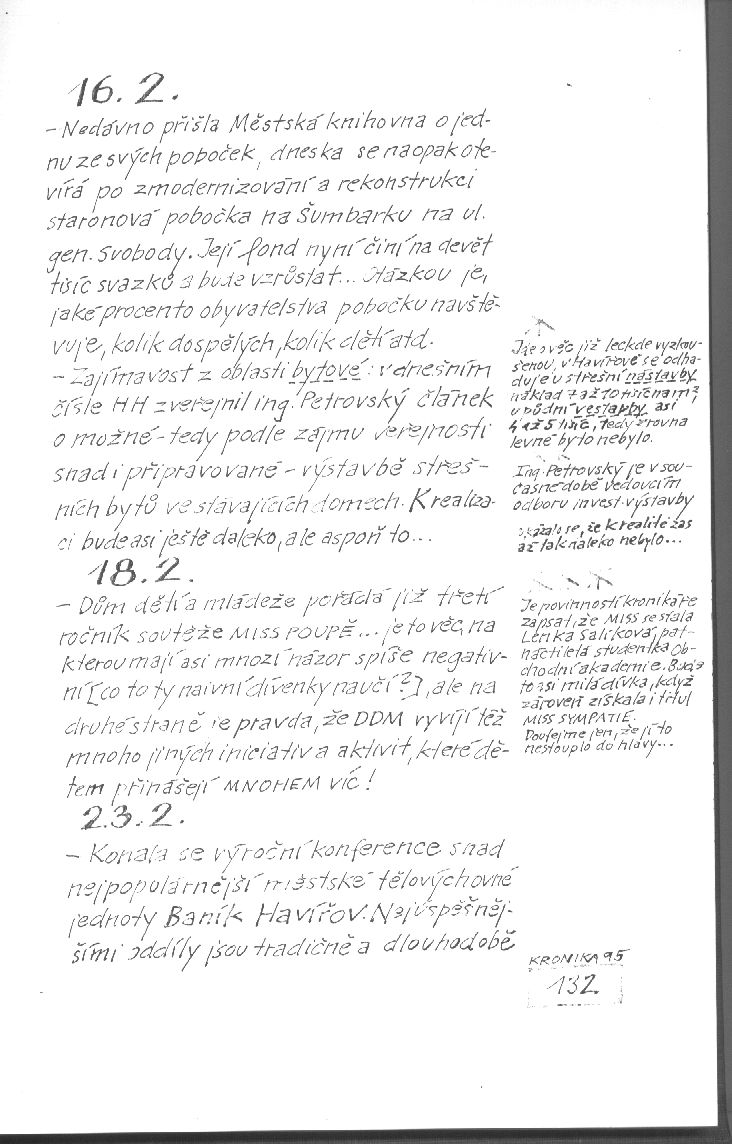 16. 2.
- Nedávno přišla Městská knihovna o jed-
nu ze svých poboček, dneska se naopak ote-
vírá po zmodernizování a rekonstrukci
staronová pobočka na Šumbarku na ul.
gen. Svobody. Její fond nyní činí na devět
tisíc svazků a bude vzrůstat... Otázkou je,
jaké procento obyvatelstva pobočku navště-
vuje, kolik dospělých, kolik dětí atd.
- Zajímavost z oblasti bytové: v dnešním
čísle HH zveřejnil ing. Petrovský článek
o možné - tedy podle zájmu veřejnosti
snad i připravované - výstavbě střeš-
ních bytů ve stávajících domech. K realiza-
ci bude asi ještě daleko, ale aspoň to...
18. 2.
- Dům dětí a mládeže pořádá již třetí
ročník soutěže MISS POUPĚ... je to věc, na
kterou mají asi mnozí názor spíše negativ-
ní [co to ty naivní dívenky naučí?], ale na
druhé straně je pravda, že DDM vyvíjí též
mnoho jiných iniciativ a aktivit, které dě-
tem přinášejí MNOHEM VÍC!
23. 2.
- Konala se výroční konference snad
nejpopulárnější městské tělovýchovné
jednoty Baník Havířov. Nejúspěšněj-
šími oddíly jsou tradičně a dlouhodobě
Jde o věc již leckde vyzkou-
šenou, v Havířově se odha-
duje u střešní nástavby
náklad 7 až 10 tisíc na m²,
u půdní vestavby asi
4 až 5 tisíc, tedy zrovna
levné by to nebylo.
Ing. Petrovský je v sou-
časné době vedoucím
odboru invest. výstavby
ukázalo se, že k realitě zas
až tak daleko nebylo...
Je povinností kronikáře
zapsat, že MISS se stala
Lenka Salíková, pat-
náctiletá studentka Ob-
chodní akademie. Bude
to asi milá dívka, když
zároveň získala i titul
MISS SYMPATIE.
Doufejme jen, že jí to
nestouplo do hlavy...
KRONIKA 95
132